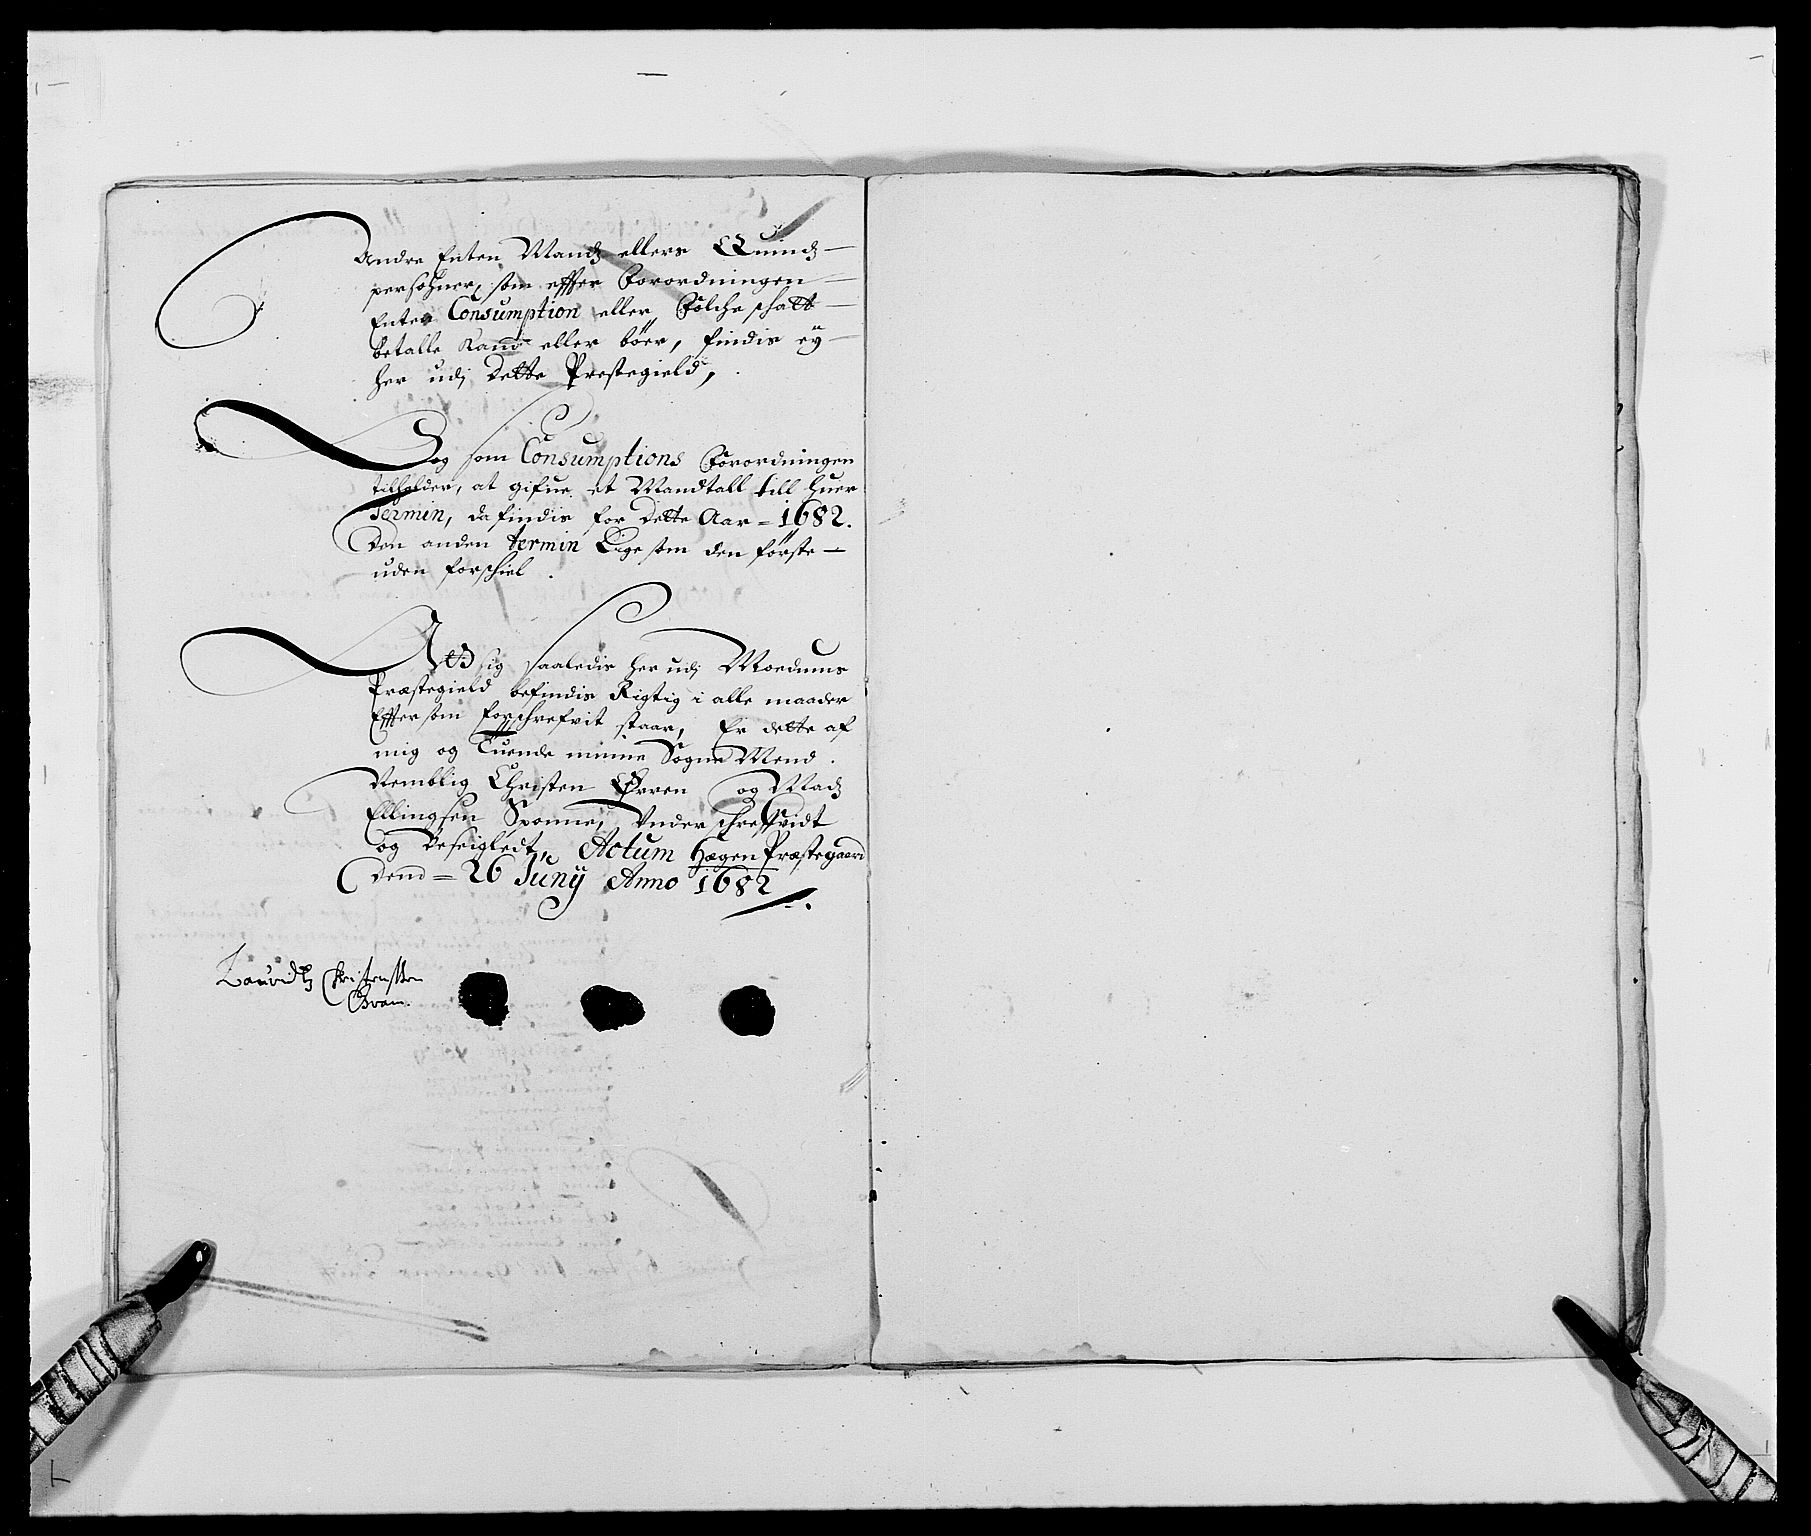 Andre Enten Mandz ellers Quindz
persohner, som effter Forordningen
Enten Consumption eller Folche schatt
betalle Kand eller böer, findis eÿ
her udj Dette Prestegield,
Dog som Consumptions Forordningen
tilholder, at gifue et Mandtall till huer
Termin, da findis for dette Aar = 1682.
Den anden termin Lige som den förste
uden forschiel.
At sig saaledis her udj Moedums
Præstegield befindis Rigtig i alle maader
Effter som forschrefvit staar, Er dette af
mig og Tuende minne Sogne Mend.
Nemblig Christen Ørren og Madz
Ellingsen Sponne, Underschreffvidt
og Beseigledt, Actum Hægen Præstegaard
Dend = 26 Junij Anno 1682
Lauridtz Christenssen
Gram.